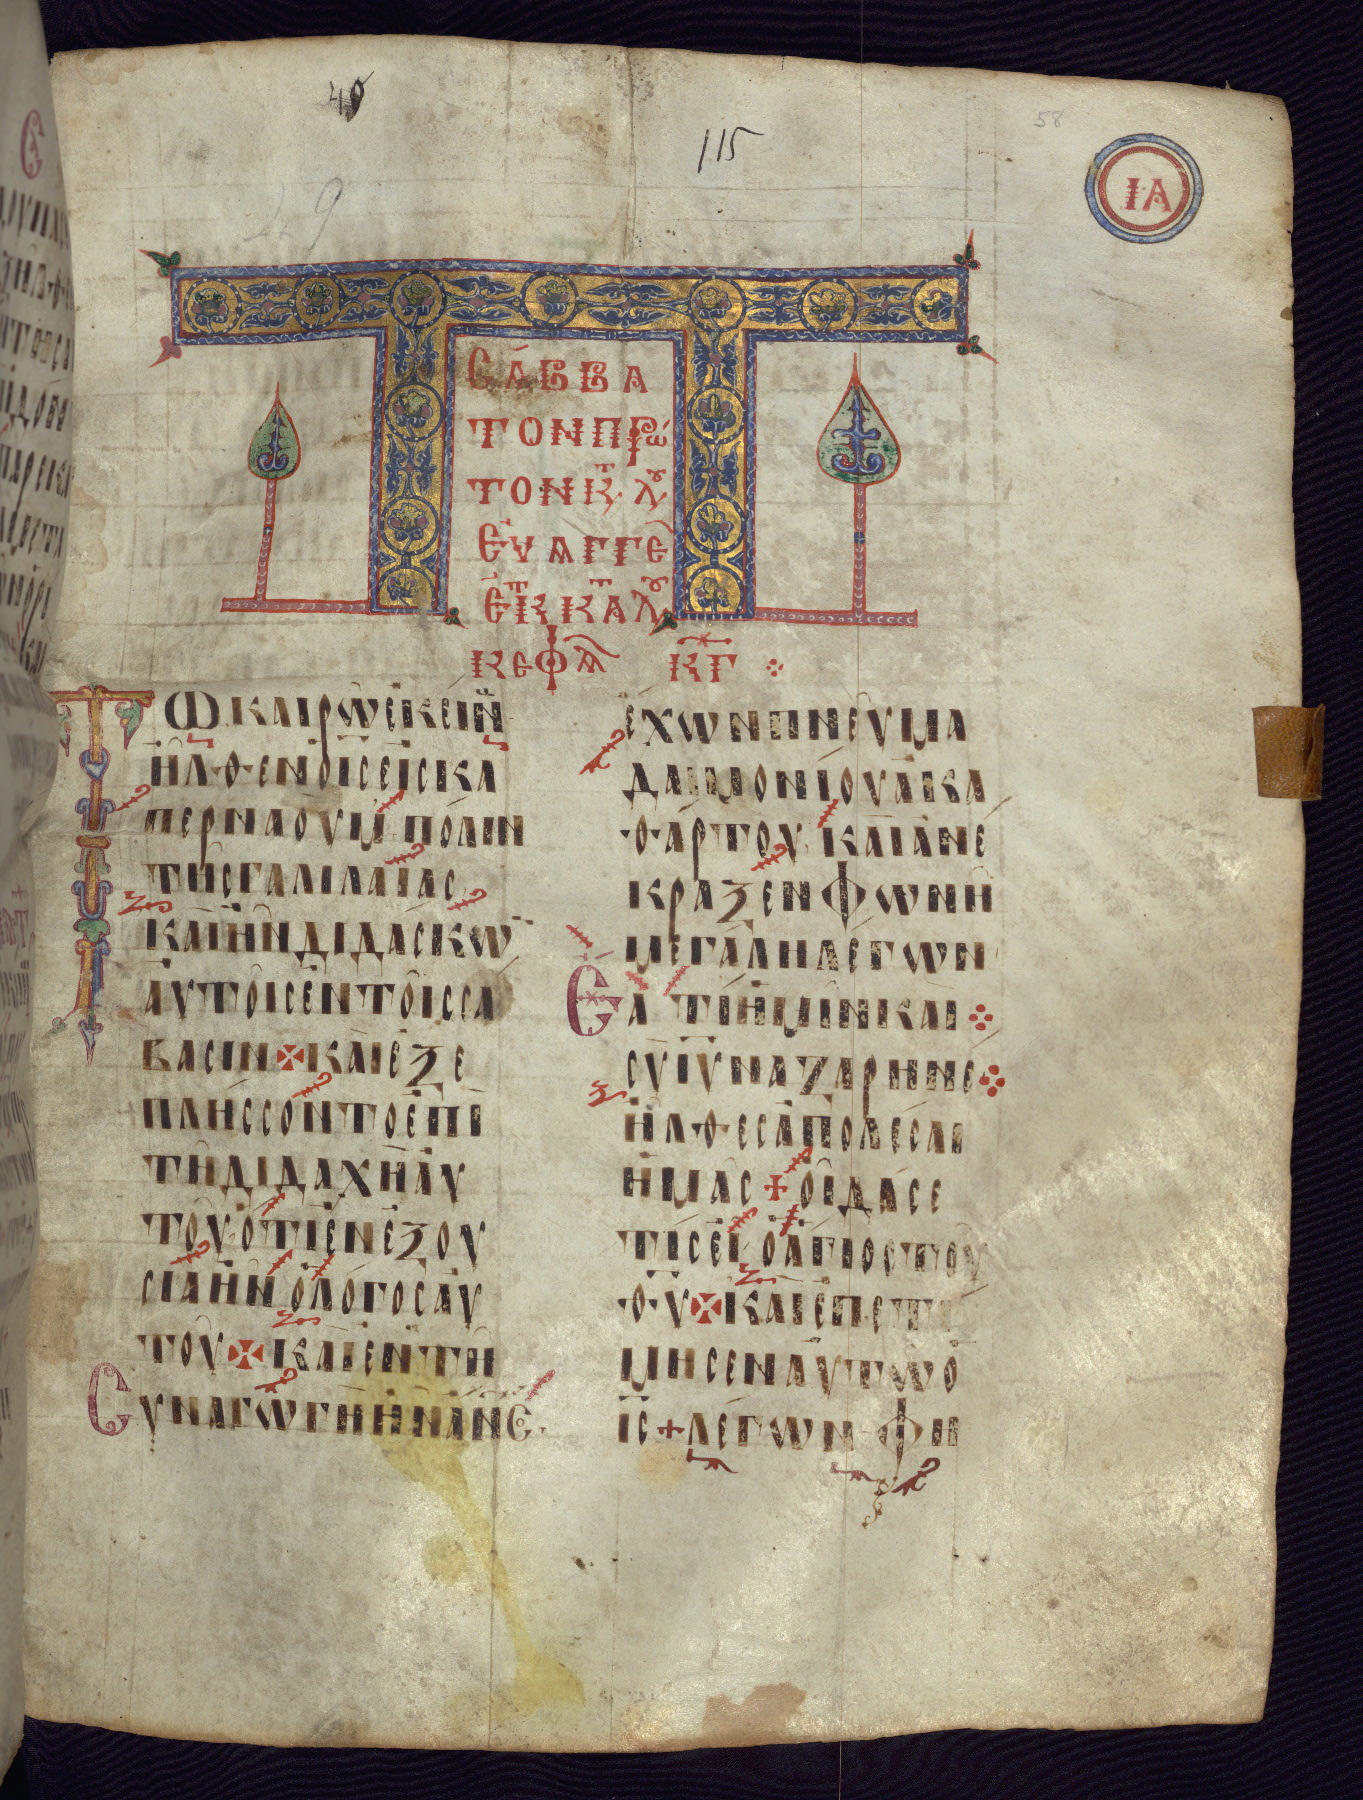 40
115
58
29
ΙΑ
Σάββα
τονπρώ
τονκτλ
Ευαγγε
εκκτλ
κεφα κγ
Τωκαιρῶεκείν
ἦλθενὁιςεἰςκα
περναουμπόλιν
τῆςγαλιλαίας
καιῆνδιδάσκω
αὐτοῖςἐντοῖςσα
βασιν καιἐξε
πλήσσοντοἐπι
τῆδιδαχῆαὐ
τοῦὅτιἐνἐξου
σίαἦνὁλόγοςαὐ
τοῦ καιἐντῆ
Συναγωγῆἦνανος
ἔχωνπνεῦμα
δαιμονίουἀκα
θάρτου καιἀνέ
κραξενφωνῆ
μεγάληλέγων
Ἔα τίἡμῖνκαι
συιυναζαρηνέ
ἦλθεςἀπολέσαι
ἡμας οἶδάσε
τίςεἶὁἅγιοςτοῦ
θυ καιἐπετί
μησεναὐτῶὁ
ις λέγων φι